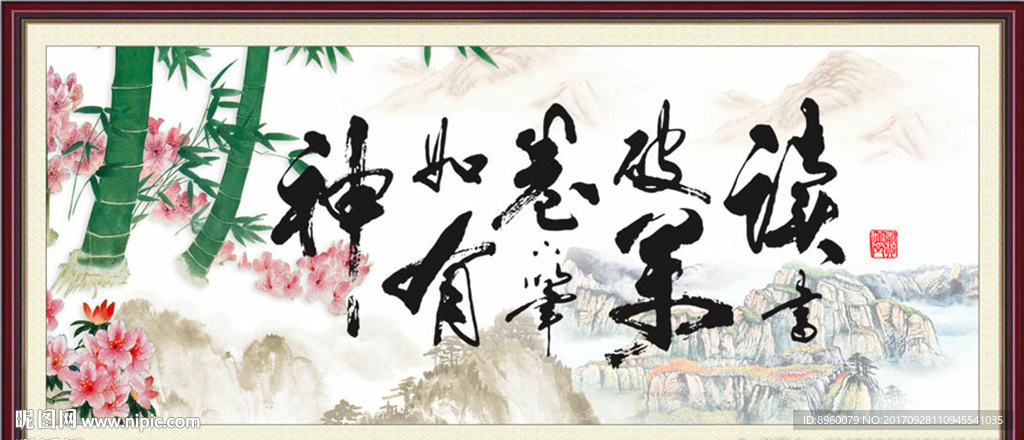 讀書
破萬
卷下筆
如有
神
昵图网 www.nipic.com
ID:8960079 NO:20170928110945541035